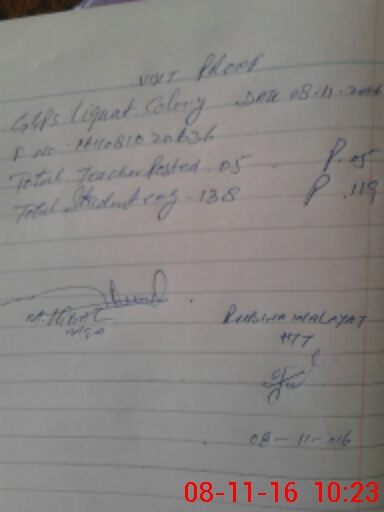 VISIT PROOF
GGPS Liaquat Colony Date 08-11-2016
Total Teacher Posted - 05 - P-05
Total Student eng - 138 P 119
RUBINA WALAYAT
HTT
08-11-016
08-11-16 10:23